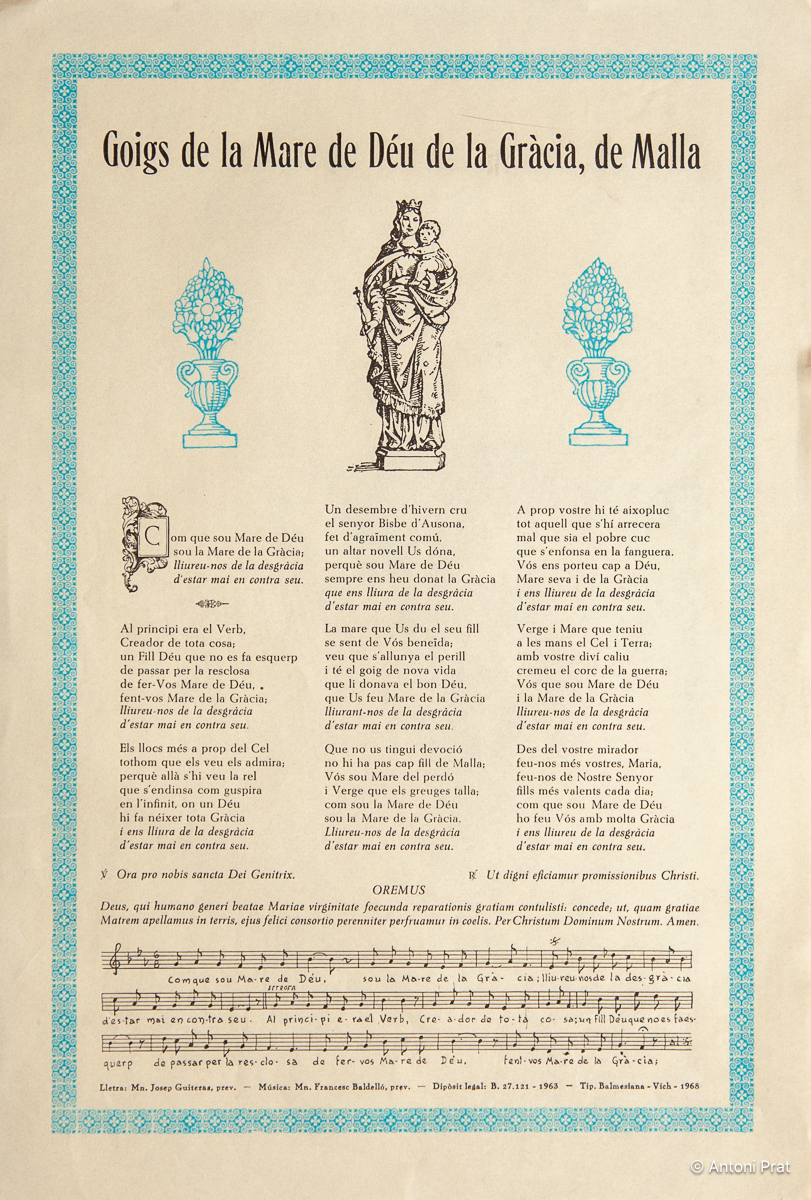 Goigs de la Mare de Déu de la Gràcia, de Malla
Com que sou Mare de Déu
sou la Mare de la Gràcia;
lliureu-nos de la desgràcia
d'estar mai en contra seu.
Al principi era el Verb,
Creador de tota cosa;
un Fill Déu que no es fa esquerp
de passar per la resclosa
de fer-Vos Mare de Déu,
fent-vos Mare de la Gràcia;
lliureu-nos de la desgràcia
d'estar mai en contra seu.
Els llocs més a prop del Cel
tothom que els veu els admira;
perquè allà s'hi veu la rel
que s'endinsa com guspira
en l'infinit, on un Déu
hi fa néixer tota Gràcia
i ens lliura de la desgràcia
d'estar mai en contra seu.
Un desembre d'hivern cru
el senyor Bisbe d'Ausona,
fet d'agraïment comú,
un altar novell Us dóna,
perquè sou Mare de Déu
sempre ens heu donat la Gràcia
que ens lliura de la desgràcia
d'estar mai en contra seu.
La mare que Us du el seu fill
se sent de Vós beneïda;
veu que s'allunya el perill
i té el goig de nova vida
que li donava el bon Déu,
que Us feu Mare de la Gràcia
lliurant-nos de la desgràcia
d'estar mai en contra seu.
Que no us tingui devoció
no hi ha pas cap fill de Malla;
Vós sou Mare del perdó
i Verge que els greuges talla;
com sou la Mare de Déu
sou la Mare de la Gràcia.
Lliureu-nos de la desgràcia
d'estar mai en contra seu.
A prop vostre hi té aixopluc
tot aquell que s'hí arrecera
mal que sia el pobre cuc
que s'enfonsa en la fanguera.
Vós ens porteu cap a Déu,
Mare seva i de la Gràcia
i ens lliureu de la desgràcia
d'estar mai en contra seu.
Verge i Mare que teniu
a les mans el Cel i Terra;
amb vostre diví caliu
cremeu el corc de la guerra;
Vós que sou Mare de Déu
i la Mare de la Gràcia
lliureu-nos de la desgràcia
d'estar mai en contra seu.
Des del vostre mirador
feu-nos més vostres, Maria,
feu-nos de Nostre Senyor
fills més valents cada dia;
com que sou Mare de Déu
ho feu Vós amb molta Gràcia
i ens lliureu de la desgràcia
d'estar mai en contra seu.
℣ Ora pro nobis sancta Dei Genitrix. ℟ Ut digni eficiamur promissionibus Christi.
OREMUS
Deus, qui humano generi beatae Mariae virginitate foecunda reparationis gratiam contulisti: concede; ut, quam gratiae
Matrem apellamus in terris, ejus felici consortio perenniter perfruamur in coelis. Per Christum Dominum Nostrum. Amen.
Com que sou Ma-re de Déu, sou la Ma-re de la Grà-cia; lliu-reu-nos de la des-grà-cia
d'es-tar mai en con-tra seu. Al princi-pi e-ra el Verb, Cre-a-dor de to-ta co-sa; un Fill Déu que no es fa es-
querp de passar per la res-clo-sa de fer-vos Ma-re de Déu, fent-vos Ma-re de la Grà-cia;
Lletra: Mn. Josep Guiteras, prev. — Música: Mn. Francesc Baldelló, prev. — Dipòsit legal: B. 27.121 - 1963 — Tip. Balmesiana - Vich - 1968
© Antoni Prat